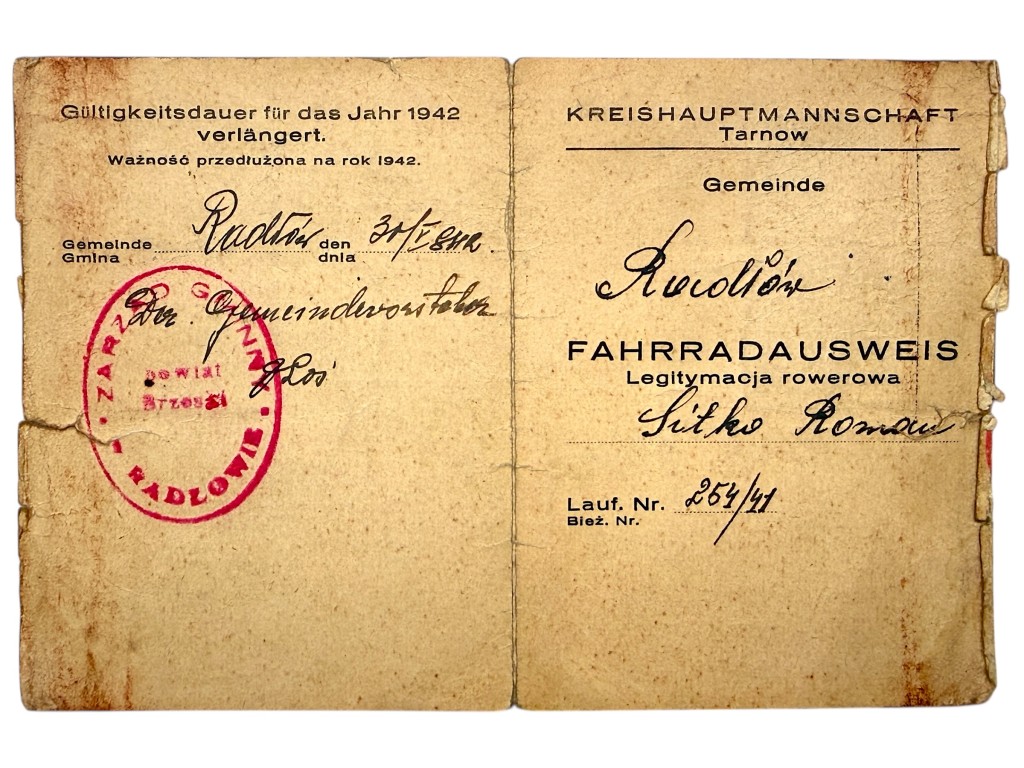 Gültigkeitsdauer für das Jahr 1942
verlängert.
Ważność przedłużona na rok 1942.
Gemeinde Radłów den
Gmina dnia
Der Gemeindevorsteher
ZARZĄD GMINNY
powiat
Brzeski
RADŁOWIE
KREISHAUPTMANNSCHAFT
Tarnow
Gemeinde
Radłów
FAHRRADAUSWEIS
Legitymacja rowerowa
Sitko Roman
Lauf. Nr. 254/41
Bież. Nr.